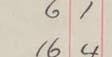 6 1
16 4